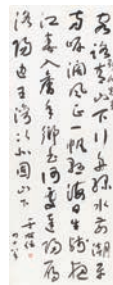 客路青山下行舟綠水前潮平
兩岸闊風正一帆懸海日生殘夜
江春入舊年鄉書何處達歸雁
洛陽邊王灣次北固山下于右任